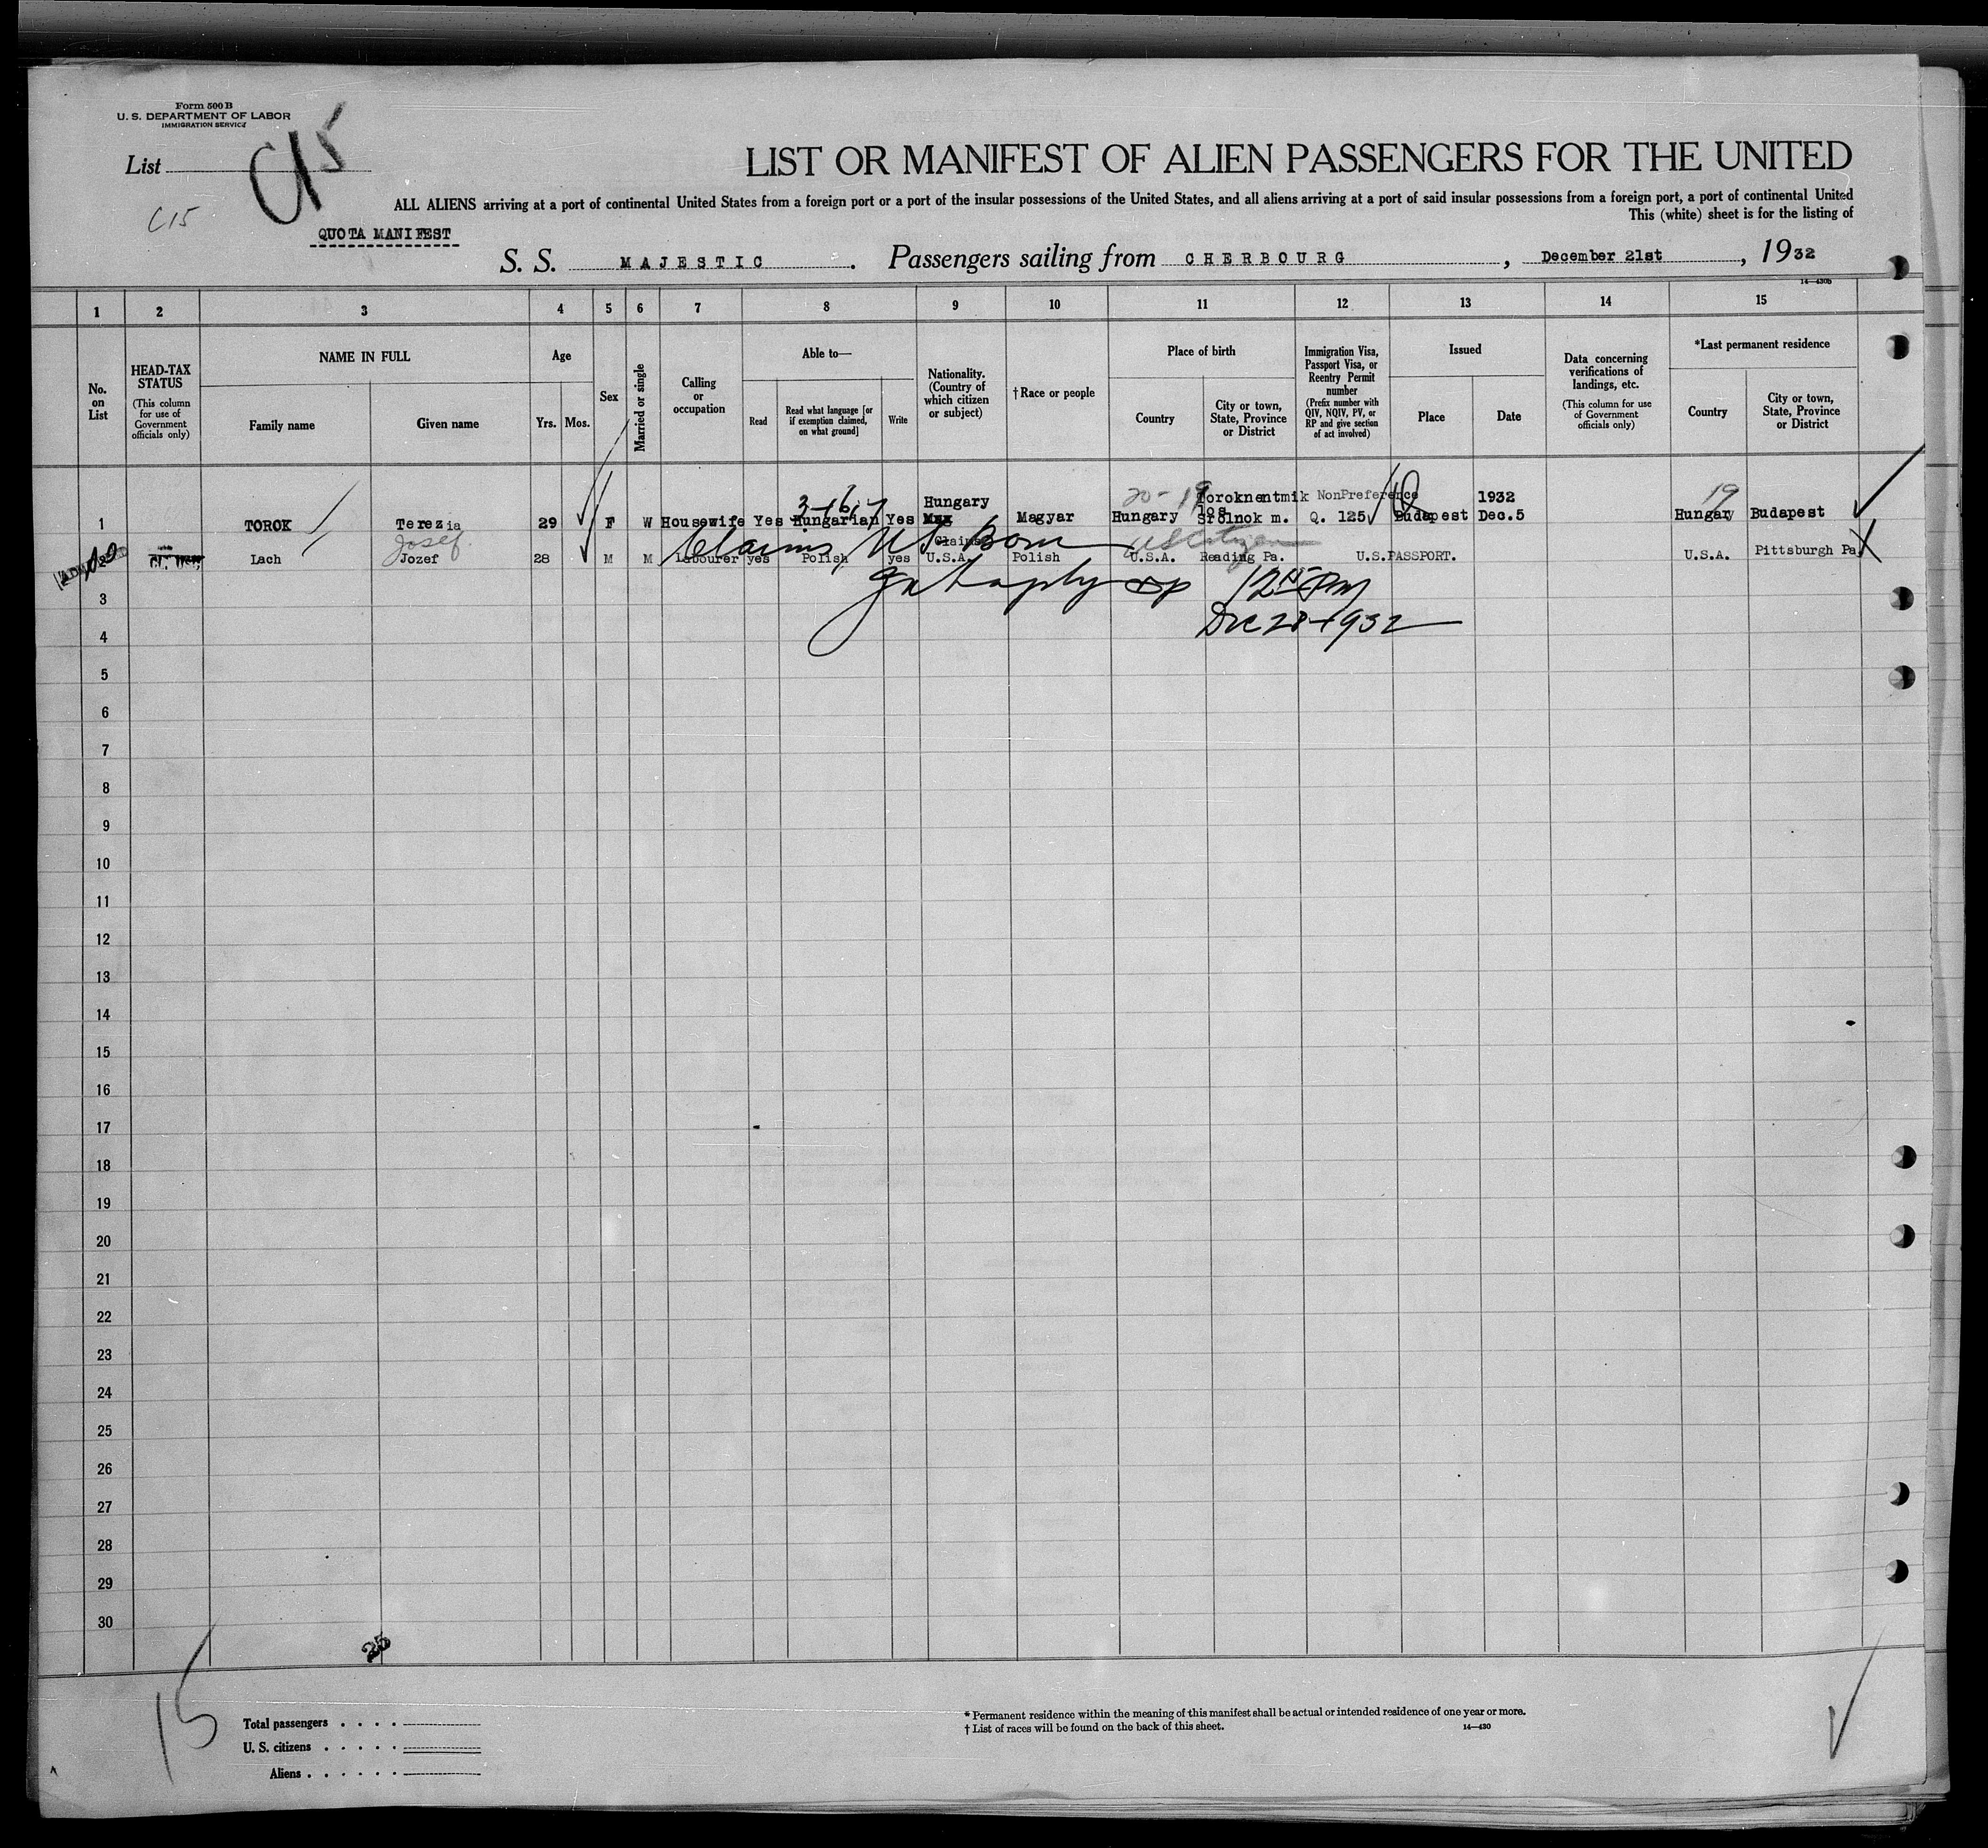 Form 500 B
U. S. DEPARTMENT OF LABOR
IMMIGRATION SERVICE
List
C15
C15
LIST OR MANIFEST OF ALIEN PASSENGERS FOR THE UNITED
ALL ALIENS arriving at a port of continental United States from a foreign port or a port of the insular possessions of the United States, and all aliens arriving at a port of said insular possessions from a foreign port, a port of continental United
This (white) sheet is for the listing of
QUOTA MANIFEST
S. S. MAJESTIC. Passengers sailing from CHERBOURG, December 21st, 1932
14—430b
1 2 3 4 5 6 7 8 9 10 11 12 13 14 15
No. on List
HEAD-TAX STATUS (This column for use of Government officials only)
NAME IN FULL
Family name Given name
Age
Yrs. Mos.
Sex
Married or single
Calling or occupation
Able to—
Read Read what language [or if exemption claimed, on what ground] Write
Nationality. (Country of which citizen or subject)
†Race or people
Place of birth
Country City or town, State, Province or District
Immigration Visa, Passport Visa, or Reentry Permit number (Prefix number with QIV, NQIV, PV, or RP and give section of act involved)
Issued
Place Date
Data concerning verifications of landings, etc. (This column for use of Government officials only)
*Last permanent residence
Country City or town, State, Province or District
20-19 19
Hungary Toroknentmik NonPreference 1932
1 TOROK Terezia 29 F W Housewife Yes Hungarian Yes Magyar Hungary Q. 125 Budapest Dec.5 Hungary Budapest
Josef Claims US Born US Citizen
Claims
2 Lach Jozef 28 M M Labourer yes Polish yes U.S.A. Polish U.S.A. Reading Pa. U.S.PASSPORT. U.S.A. Pittsburgh Pa
12 PM
3
Dec 28-1932
4
5
6
7
8
9
10
11
12
13
14
15
16
17
18
19
20
21
22
23
24
25
26
27
28
29
30
25
15
Total passengers . . . .
U. S. citizens . . . . .
Aliens . . . . . .
* Permanent residence within the meaning of this manifest shall be actual or intended residence of one year or more.
† List of races will be found on the back of this sheet. 14—430